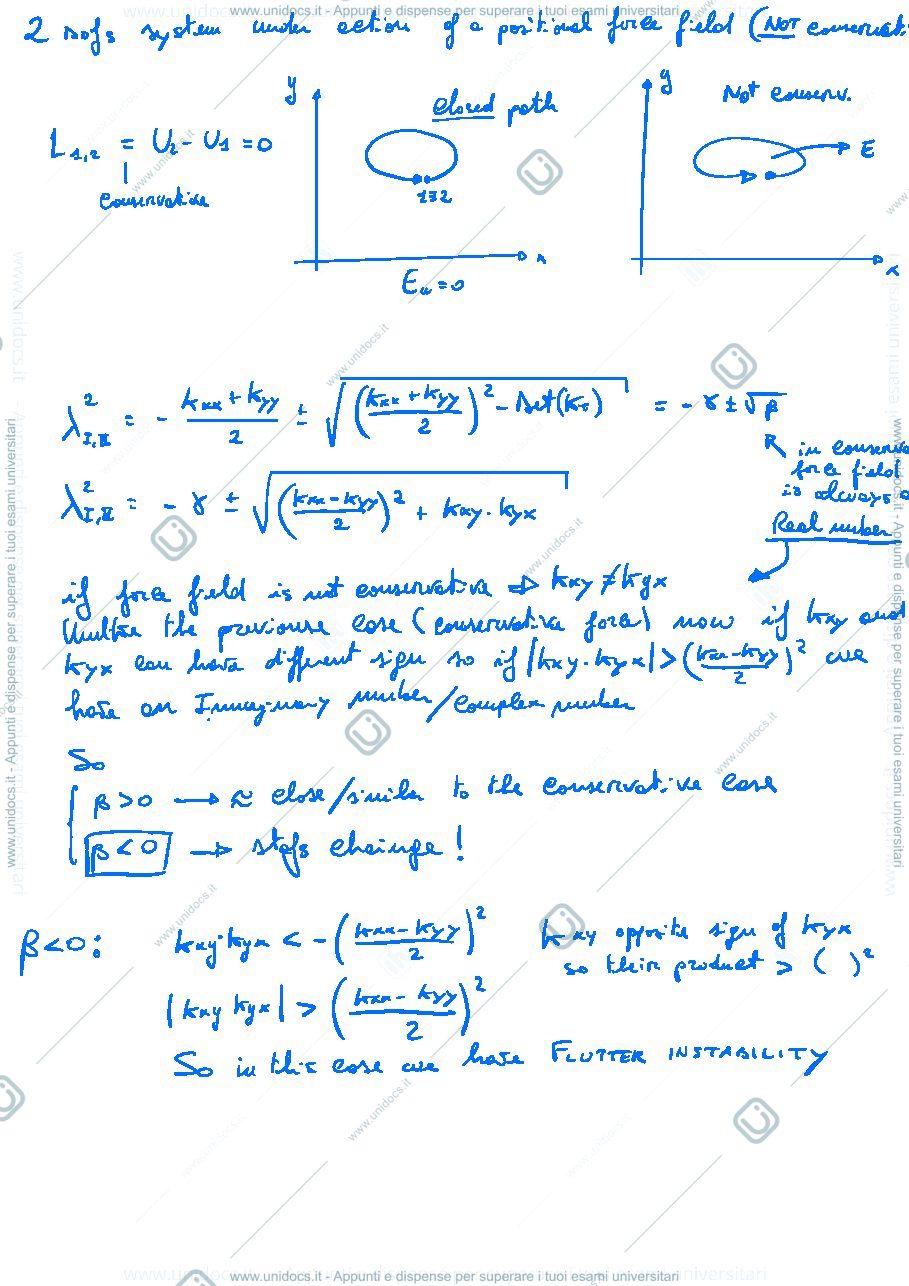 www.unidocs.it - Appunti e dispense per superare i tuoi esami universitari
2 dofs system under action of a positional force field (NOT conservati
y
closed path
1≡2
x
E_u = 0
y
Not conserv.
E
x
L_{1,2} = U_2 - U_1 = 0
conservative
λ²_{I,II} = - (k_xx + k_yy)/2 ± √(((k_xx + k_yy)/2)² - Det(k_T)) = - γ ± √β
in conserva
force field
is always a
Real number
λ²_{I,II} = - γ ± √(((k_xx - k_yy)/2)² + k_xy · k_yx)
if force field is not conservative ⇒ k_xy ≠ k_yx
Unlike the previouse case (conservative force) now if k_xy and
k_yx can have different sign so if |k_xy · k_yx| > ((k_xx - k_yy)/2)² we
have an Immaginary number/complex number
So
β > 0 → ≈ close/similar to the conservative case
β < 0 → stofs chainge!
β < 0:
k_xy · k_yx < - ((k_xx - k_yy)/2)²
k_xy opposite sign of k_yx
so their product > ( )²
|k_xy k_yx| > ((k_xx - k_yy)/2)²
So in this case we have FLUTTER INSTABILITY
www.unidocs.it - Appunti e dispense per superare i tuoi esami universitari